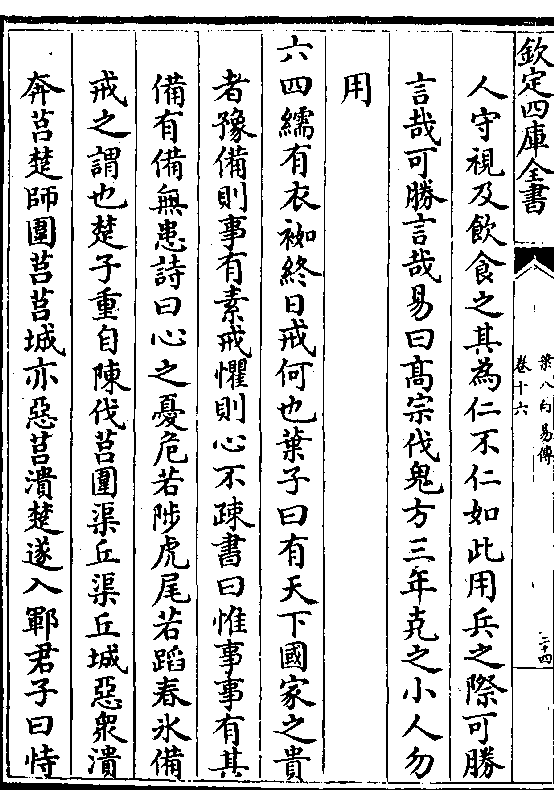 欽定四庫全書
葉八白易傳
卷十六
二十四
人守視及飲食之其為仁不仁如此用兵之際可勝
言哉可勝言哉易曰髙宗伐鬼方三年克之小人勿
用
六四繻有衣袽終日戒何也葉子曰有天下國家之貴
者豫備則事有素戒懼則心不疎書曰惟事事有其
備有備無患詩曰心之憂危若陟虎尾若蹈春氷備
戒之謂也楚子重自陳伐莒圍渠丘渠丘城惡衆潰
奔莒楚師圍莒莒城亦惡莒潰楚遂入鄆君子曰恃